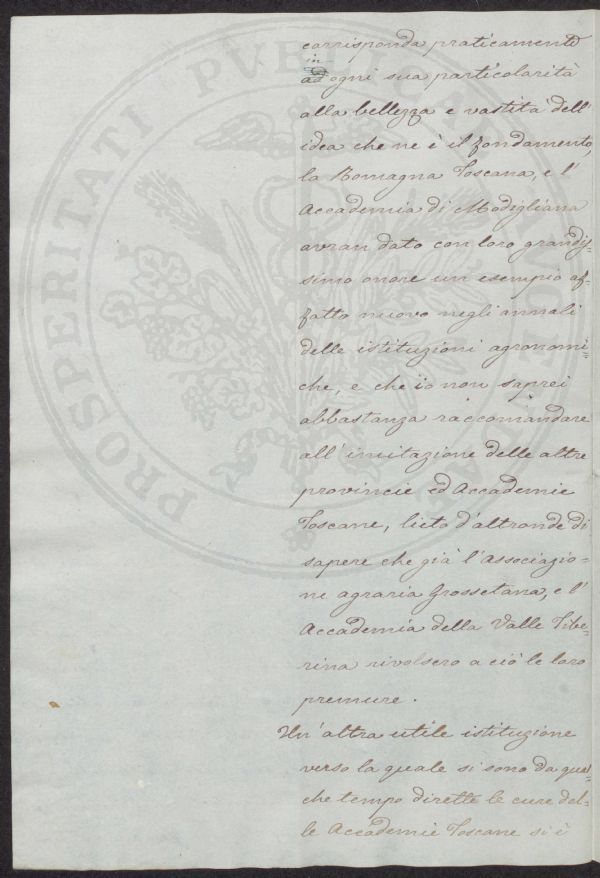 corrisponda praticamente
in
ad ogni sua particolarità
alla bellezza e vastità dell'
idea che ne è il fondamento,
la Romagna Toscana, e l'
Accademia di Modigliana
avran dato con loro grandis-
simo onore un esempio af-
fatto nuovo negli annali
delle istituzioni agronomi=
che, e che io non saprei
abbastanza raccomandare
all'imitazione delle altre
provincie ed Accademie
Toscane, lieto d'altronde di
sapere che già l'Associazio=
ne agraria Grossetana, e l'
Accademia della Valle Tibe=
rina rivolsero a ciò le loro
premure.
Un'altra utile istituzione
verso la quale si sono da qual=
che tempo dirette le cure del=
le Accademie Toscane si è
PROSPERITATI PVBLICAE